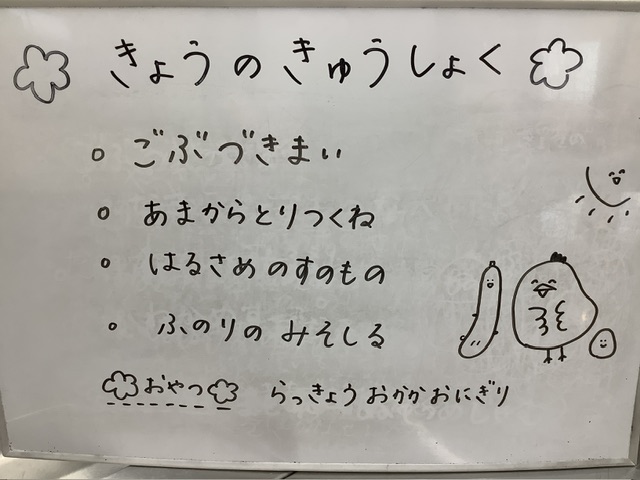 きょうのきゅうしょく
ごぶづきまい
あまからとりつくね
はるさめのすのもの
ふのりのみそしる
おやつ らっきょうおかかおにぎり